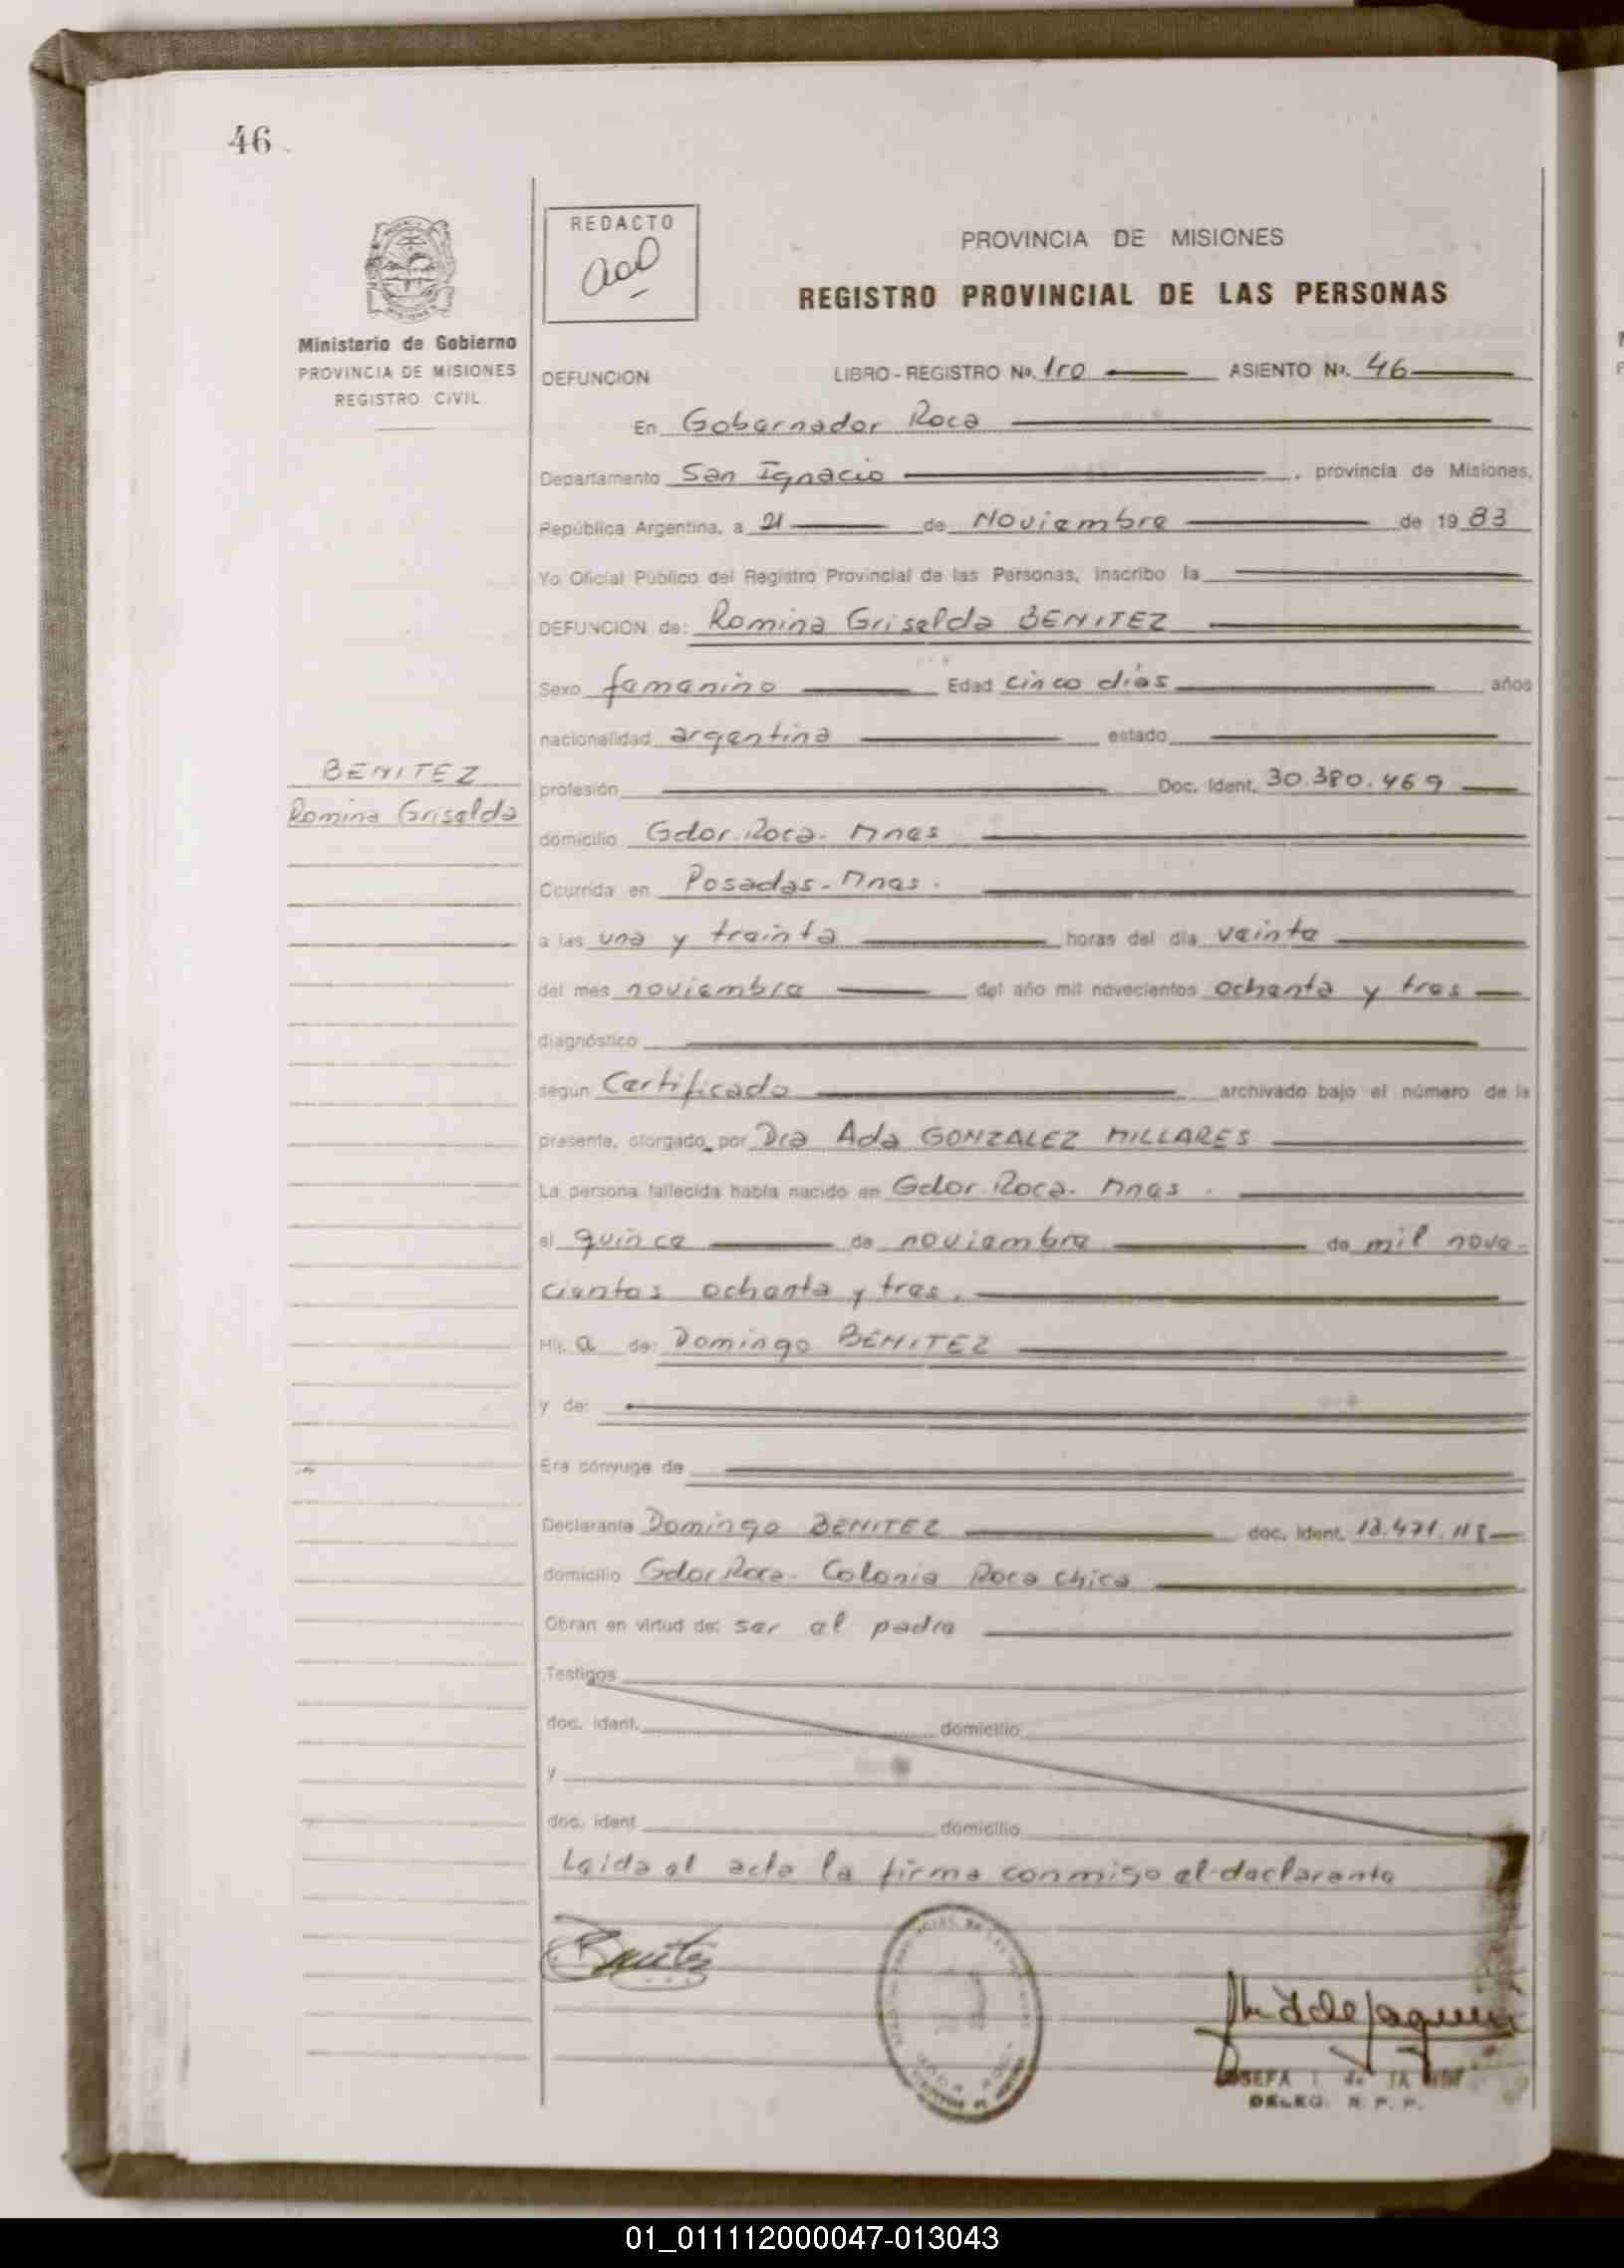 46
REDACTO
PROVINCIA DE MISIONES
REGISTRO PROVINCIAL DE LAS PERSONAS
Ministerio de Gobierno
PROVINCIA DE MISIONES
REGISTRO CIVIL
DEFUNCION LIBRO - REGISTRO No. 1ro ASIENTO No. 46
En Gobernador Roca
Departamento San Ignacio , provincia de Misiones,
República Argentina, a 21 de Noviembre de 19 83
Yo Oficial Público del Registro Provincial de las Personas, inscribo la
DEFUNCION de: Romina Griselda BENITEZ
Sexo femenino Edad cinco días años
nacionalidad argentina estado
BENITEZ
Romina Griselda
profesión Doc. Ident. 30.380.469
domicilio Gdor. Roca. Mnes
Ocurrida en Posadas - Mnes.
a las una y treinta horas del día veinte
del mes noviembre del año mil novecientos ochenta y tres
diagnóstico
según Certificado archivado bajo el número de la
presente, otorgado por Dra Ada GONZALEZ MILLARES
La persona fallecida había nacido en Gdor. Roca. Mnes.
el quince de noviembre de mil nove-
cientos ochenta y tres.
Hij a de: Domingo BENITEZ
y de:
Era cónyuge de
Declarante Domingo BENITEZ doc. ident.
domicilio Gdor Roca - Colonia Roca Chica
Obran en virtud de: ser el padre
Testigos
doc. ident. domicilio
y
doc. ident domicilio
Leida el acta la firma conmigo el declarante
Benitez
DELEG. R. P. P.
01_011112000047-013043